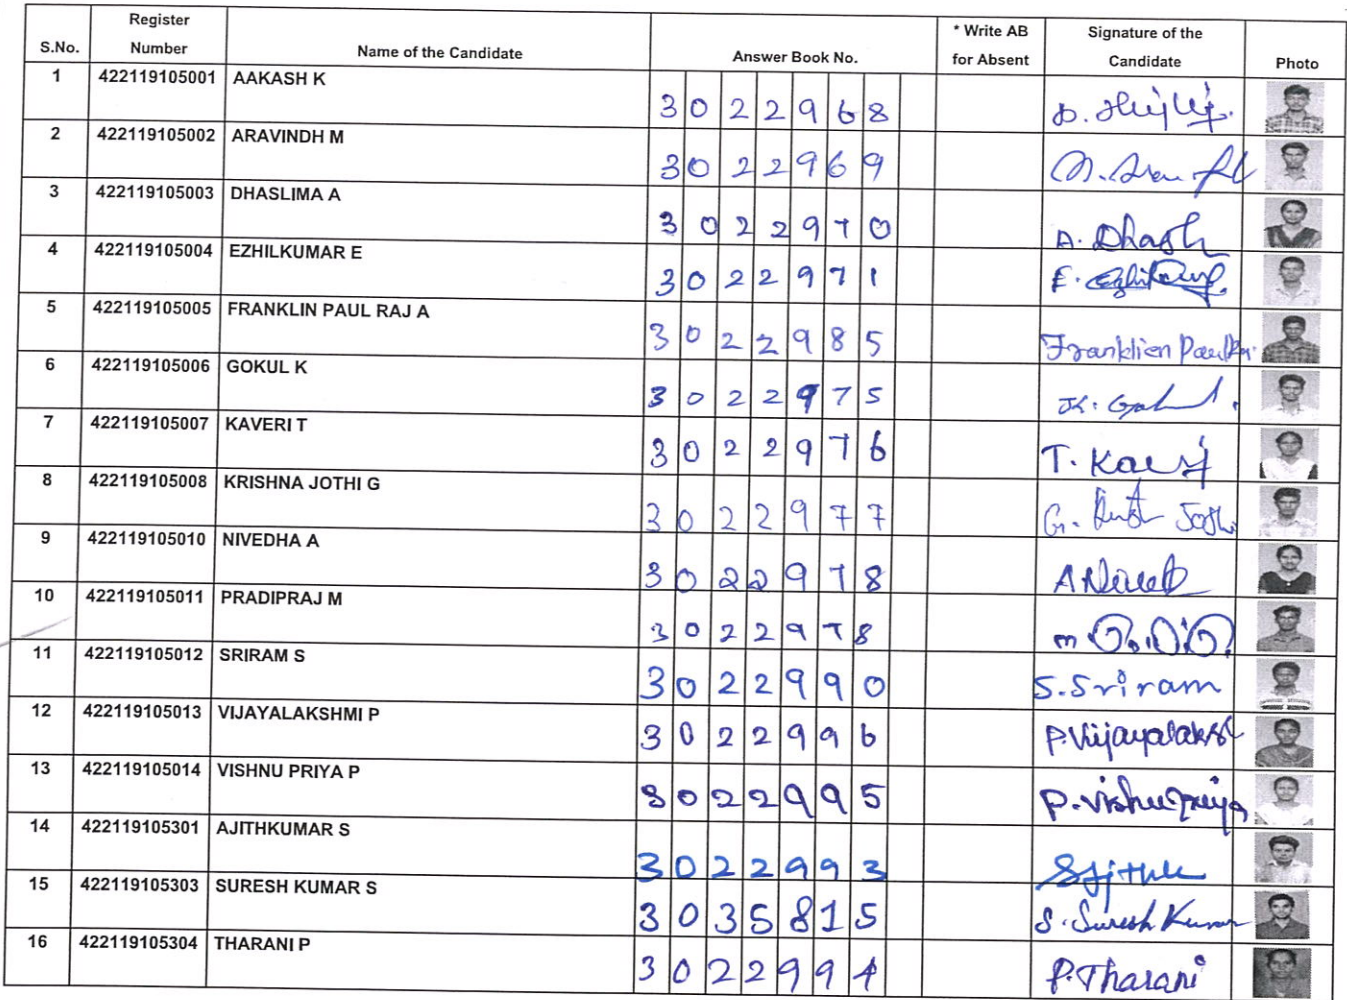 S.No. Register Number Name of the Candidate Answer Book No. * Write AB for Absent Signature of the Candidate Photo
1 422119105001 AAKASH K 3022968
2 422119105002 ARAVINDH M 3022969
3 422119105003 DHASLIMA A 3022970 A. Dhash
4 422119105004 EZHILKUMAR E 3022971
5 422119105005 FRANKLIN PAUL RAJ A 3022985 Franklien
6 422119105006 GOKUL K 3022975
7 422119105007 KAVERI T 3022976 T.
8 422119105008 KRISHNA JOTHI G 3022977 G.
9 422119105010 NIVEDHA A 3022978
10 422119105011 PRADIPRAJ M 3022978
11 422119105012 SRIRAM S 3022990 S. Sriram
12 422119105013 VIJAYALAKSHMI P 3022996
13 422119105014 VISHNU PRIYA P 3022995
14 422119105301 AJITHKUMAR S 3022993
15 422119105303 SURESH KUMAR S 3035815 S. Suresh Kumar
16 422119105304 THARANI P 3022994 P. Tharani